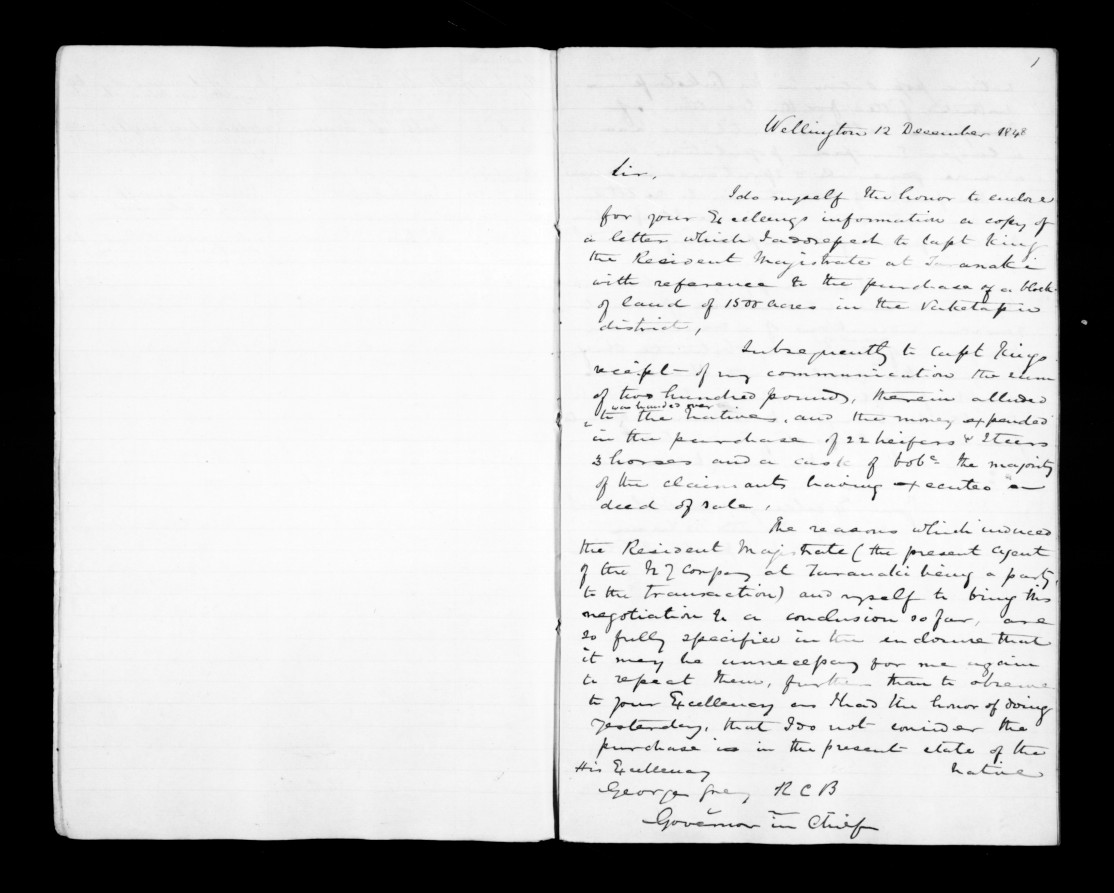 1
Wellington 12 December 1848
Sir,
I do myself the honor to enclose
for your Excellencys information a copy of
a letter which I addressed to Capt King
the Resident Magistrate at Taranaki
with reference to the purchase of a block
of land of 1500 acres in the
district,
Subsequently to Capt Kings
receipt of my communication the sum
of two hundred pounds, therein alluded
was handed over
to the natives, and the money expended
in the purchase of 22 heifers & steers
3 horses and a cask of tobc the majority
of the claimants having executed a
deed of sale,
The reasons which induced
the Resident Magistrate (the present agent
of the N Z Company at Taranaki being a party,
to the transaction) and myself to bring this
negotiation to a conclusion so far, are
so fully specified in the enclosure that
it may be unnecessary for me again
to repeat them, further than to observe
to your Excellency as I had the honor of doing
yesterday, that I do not consider the
purchase is in the present state of the
His Excellency native
George Grey K C B
Governor in Chief